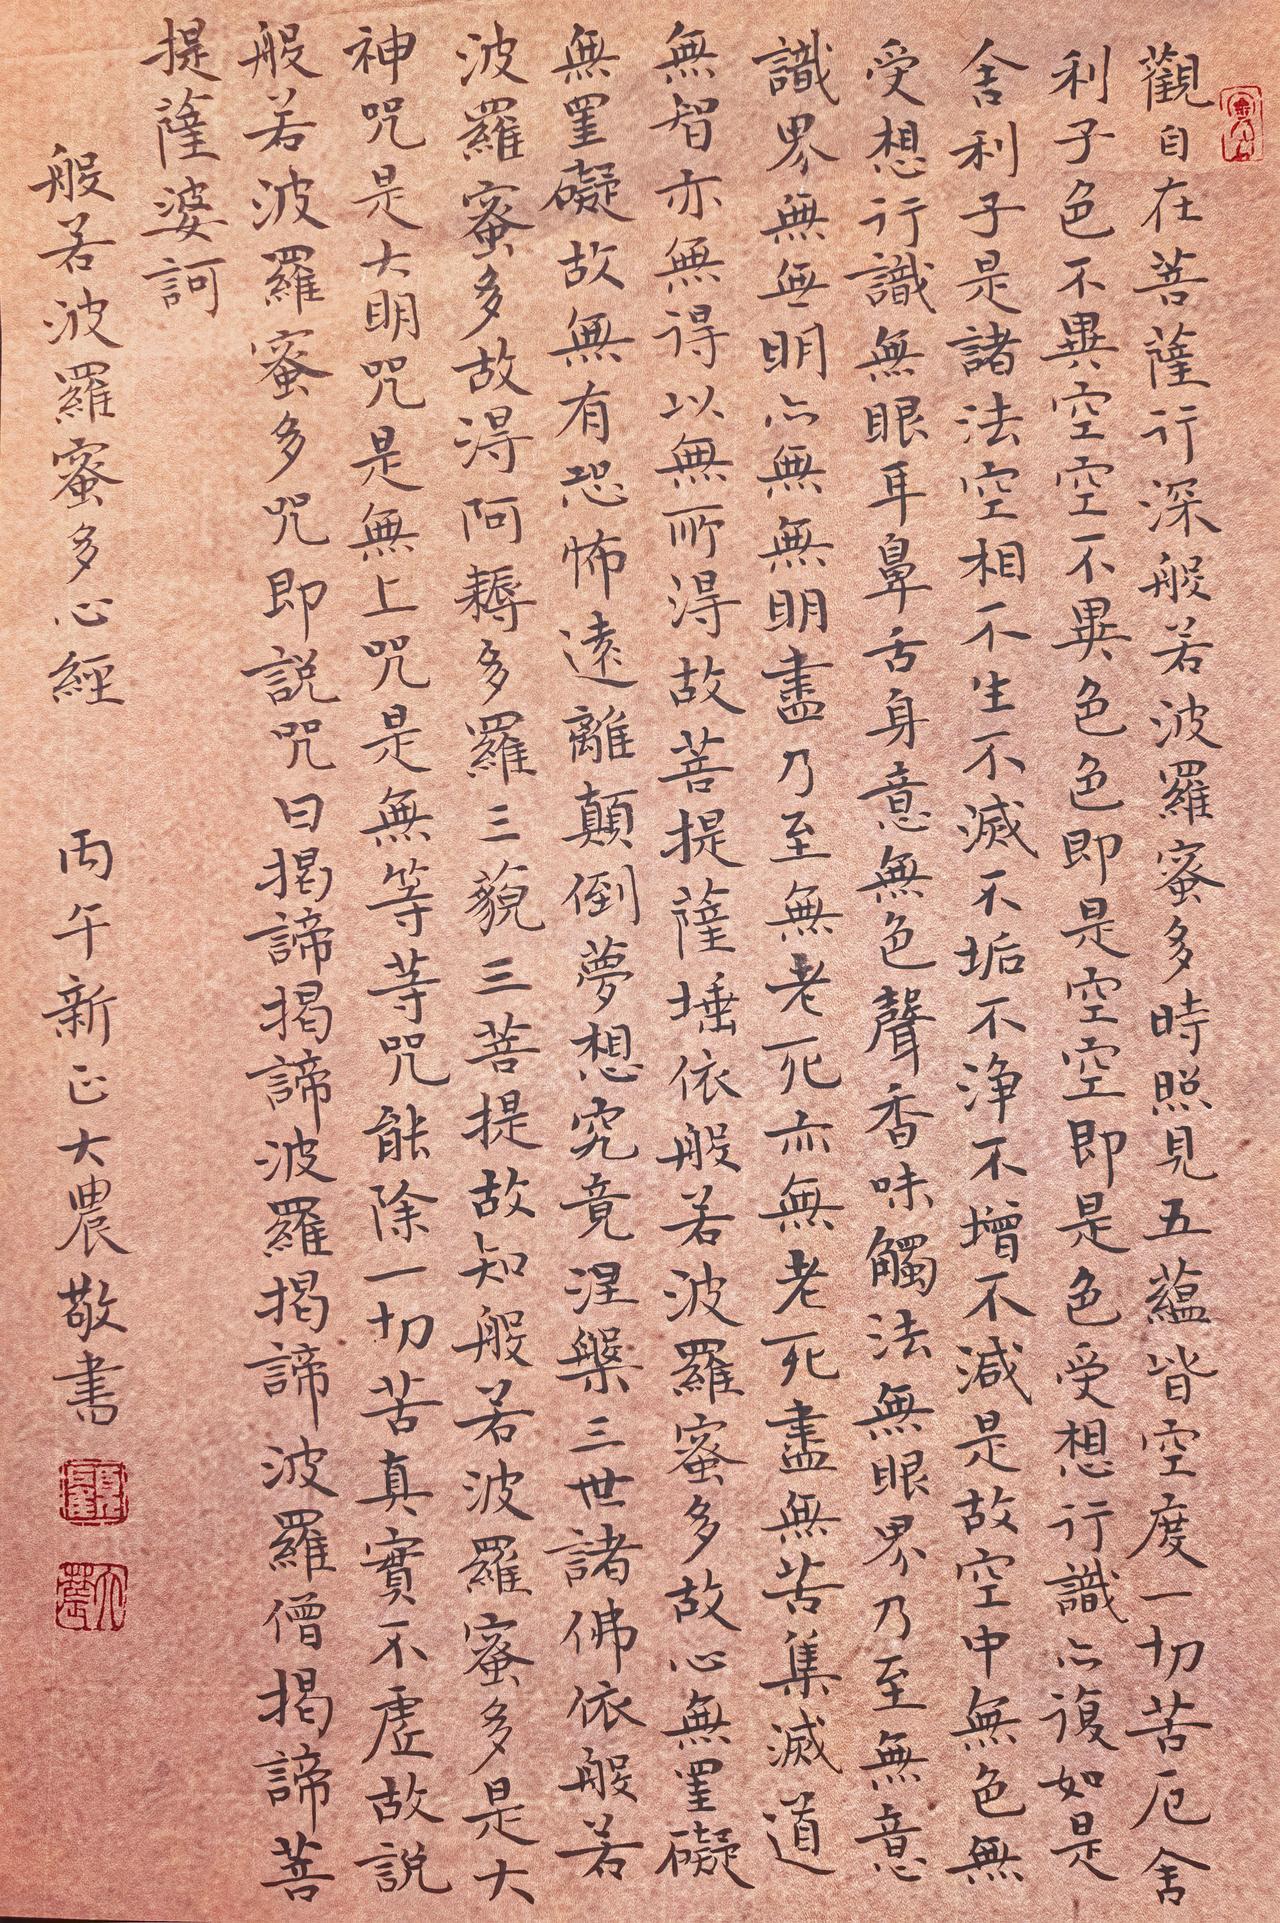 觀自在菩薩行深般若波羅蜜多時照見五蘊皆空度一切苦厄舍
利子色不異空空不異色色即是空空即是色受想行識亦復如是
舍利子是諸法空相不生不滅不垢不淨不增不減是故空中無色無
受想行識無眼耳鼻舌身意無色聲香味觸法無眼界乃至無意
識界無無明亦無無明盡乃至無老死亦無老死盡無苦集滅道
無智亦無得以無所得故菩提薩埵依般若波羅蜜多故心無罣礙
無罣礙故無有恐怖遠離顛倒夢想究竟涅槃三世諸佛依般若
波羅蜜多故得阿耨多羅三藐三菩提故知般若波羅蜜多是大
神咒是大明咒是無上咒是無等等咒能除一切苦真實不虛故說
般若波羅蜜多咒即說咒曰揭諦揭諦波羅揭諦波羅僧揭諦菩
提薩婆訶
般若波羅蜜多心經 丙午新正大農敬書